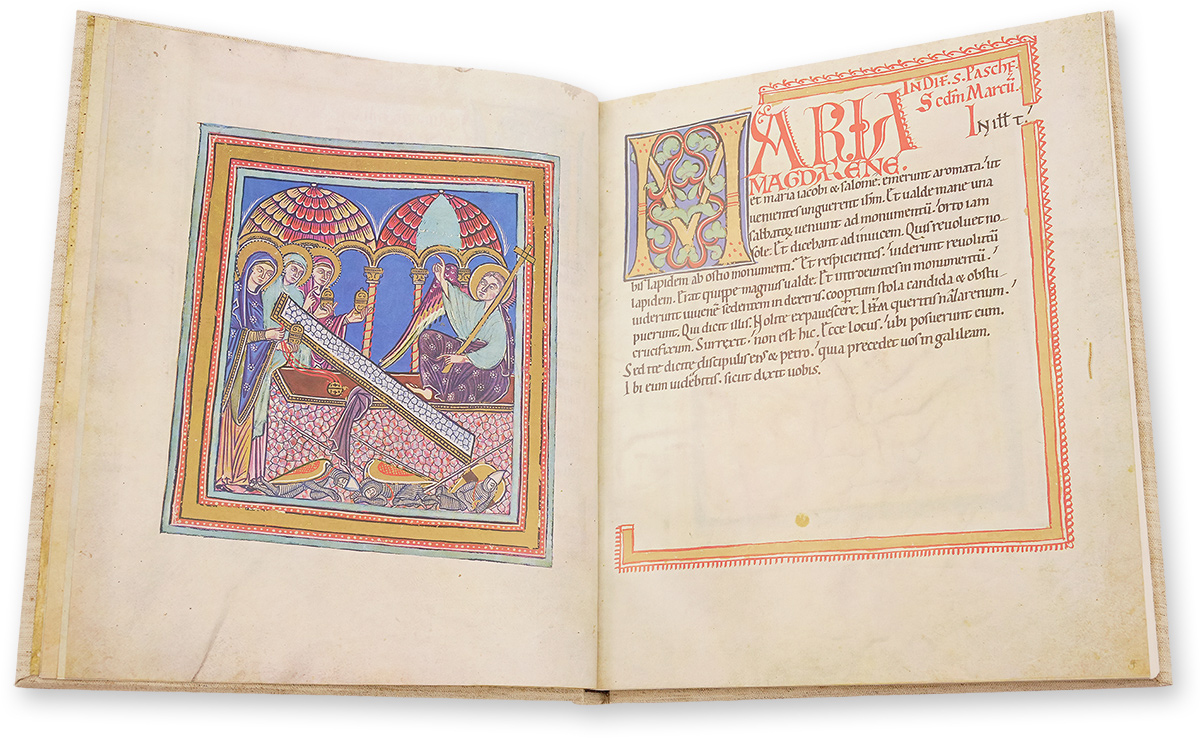 IN DIE. S. PASCHE.
Secdm Marcū.
IN illt t.'
MARIA
MAGDALENE.
et maria iacobi & salome. emerunt aromata.' ut
uenientes unguerent ihm. Et ualde mane una
sabbatoꝝ ueniunt ad monumentū.' orto iam
sole. Et dicebant ad inuicem. Quis reuoluet no-
bis lapidem ab ostio monumenti. Et respicientes.' uiderunt reuolutū
lapidem. Erat quippe magnus ualde. Et introeuntes in monumentū.'
uiderunt iuuenē sedentem in dextris. coopertum stola candida & obstu-
puerunt. Qui dicit illis. Nolite expauescere. Ihm queritis nazarenum.'
crucifixum. Surrexit.' non est hic. Ecce locus.' ubi posuerunt eum.
Sed ite dicite discipulis eius & petro.' quia precedet uos in galileam.
Ibi eum uidebitis. sicut dixit uobis.